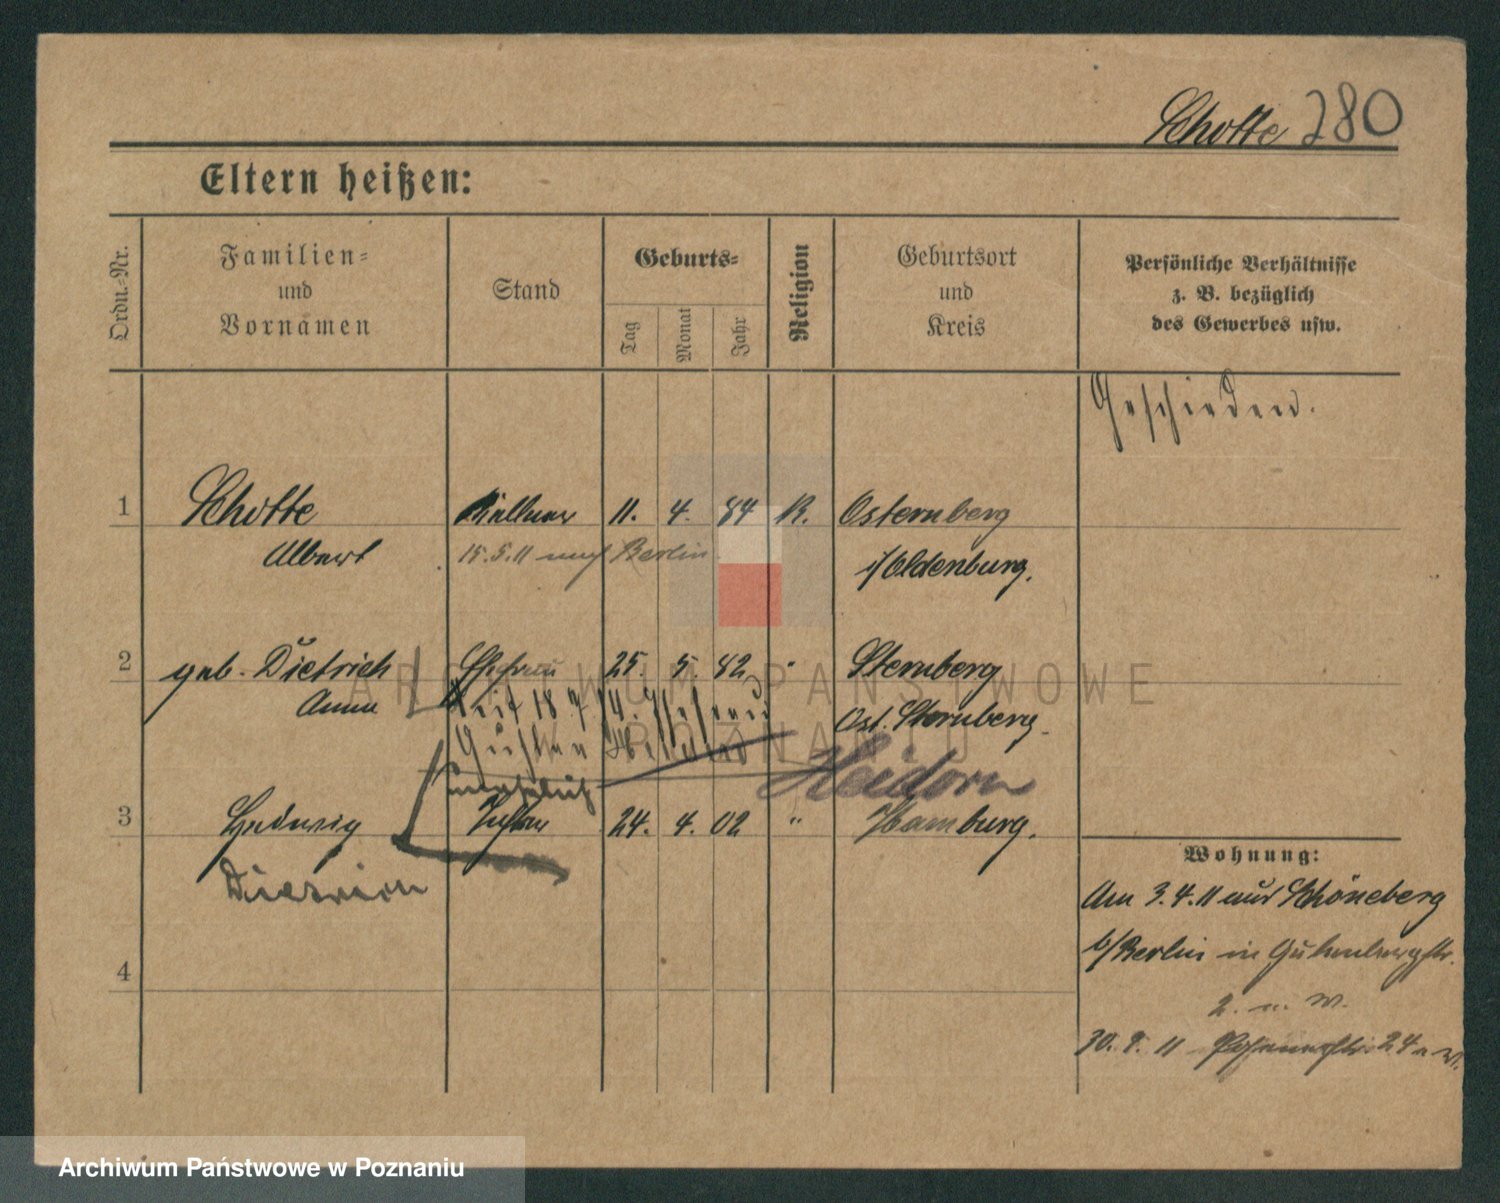 Schotte 280
Eltern heißen:
Ordn.-Nr.
Familien-
und
Vornamen
Stand
Geburts-
Tag
Monat
Jahr
Religion
Geburtsort
und
Kreis
Persönliche Verhältnisse
z. B. bezüglich
des Gewerbes usw.
Geschieden.
1 Schotte Kellner 11. 4. 84 K. Osternberg
Albert 15.5.11 nach Berlin i/Oldenburg.
2 geb. Dietrich Ehefrau 25. 5. 82 " Sternberg
Anna Ost. Sternberg.
seit 18 7 14. Ehefrau
Gustav
Heidorn
unehelich
3 Hedwig Tochter 24. 4. 02 " Hamburg.
Dietrich
4
Wohnung:
Am 3.4.11 aus Schöneberg
b/Berlin in Gutenbergstr.
2. n. W.
30. 9. 11 24 n W.
ARCHIWUM PAŃSTWOWE
W POZNANIU
Archiwum Państwowe w Poznaniu